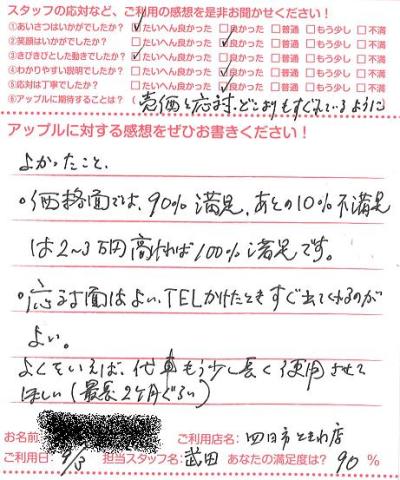 スタッフの応対など、ご利用の感想を是非お聞かせください!
①あいさつはいかがでしたか? ☑たいへん良かった □良かった □普通 □もう少し □不満
②笑顔はいかがでしたか? □たいへん良かった ☑良かった □普通 □もう少し □不満
③きびきびとした動きでしたか? ☑たいへん良かった □良かった □普通 □もう少し □不満
④わかりやすい説明でしたか? □たいへん良かった ☑良かった □普通 □もう少し □不満
⑤応対は丁寧でしたか? □たいへん良かった ☑良かった □普通 □もう少し □不満
⑥アップルに期待することは? (売価と応対、どこよりもすぐれているように)
アップルに対する感想をぜひお書きください!
よかったこと、
○価格面では、90%満足、あとの10%不満足
は2~3万円高ければ100%満足です。
○応対面はよい、TELかけたときすぐ出てくれるのが
よい。
よくをいえば、代車もう少し長く使用させて
ほしい(最長2ヶ月ぐらい)
お名前: ご利用店名: 四日市ときわ店
ご利用日: 9/3 担当スタッフ名: 武田 あなたの満足度は? 90 %